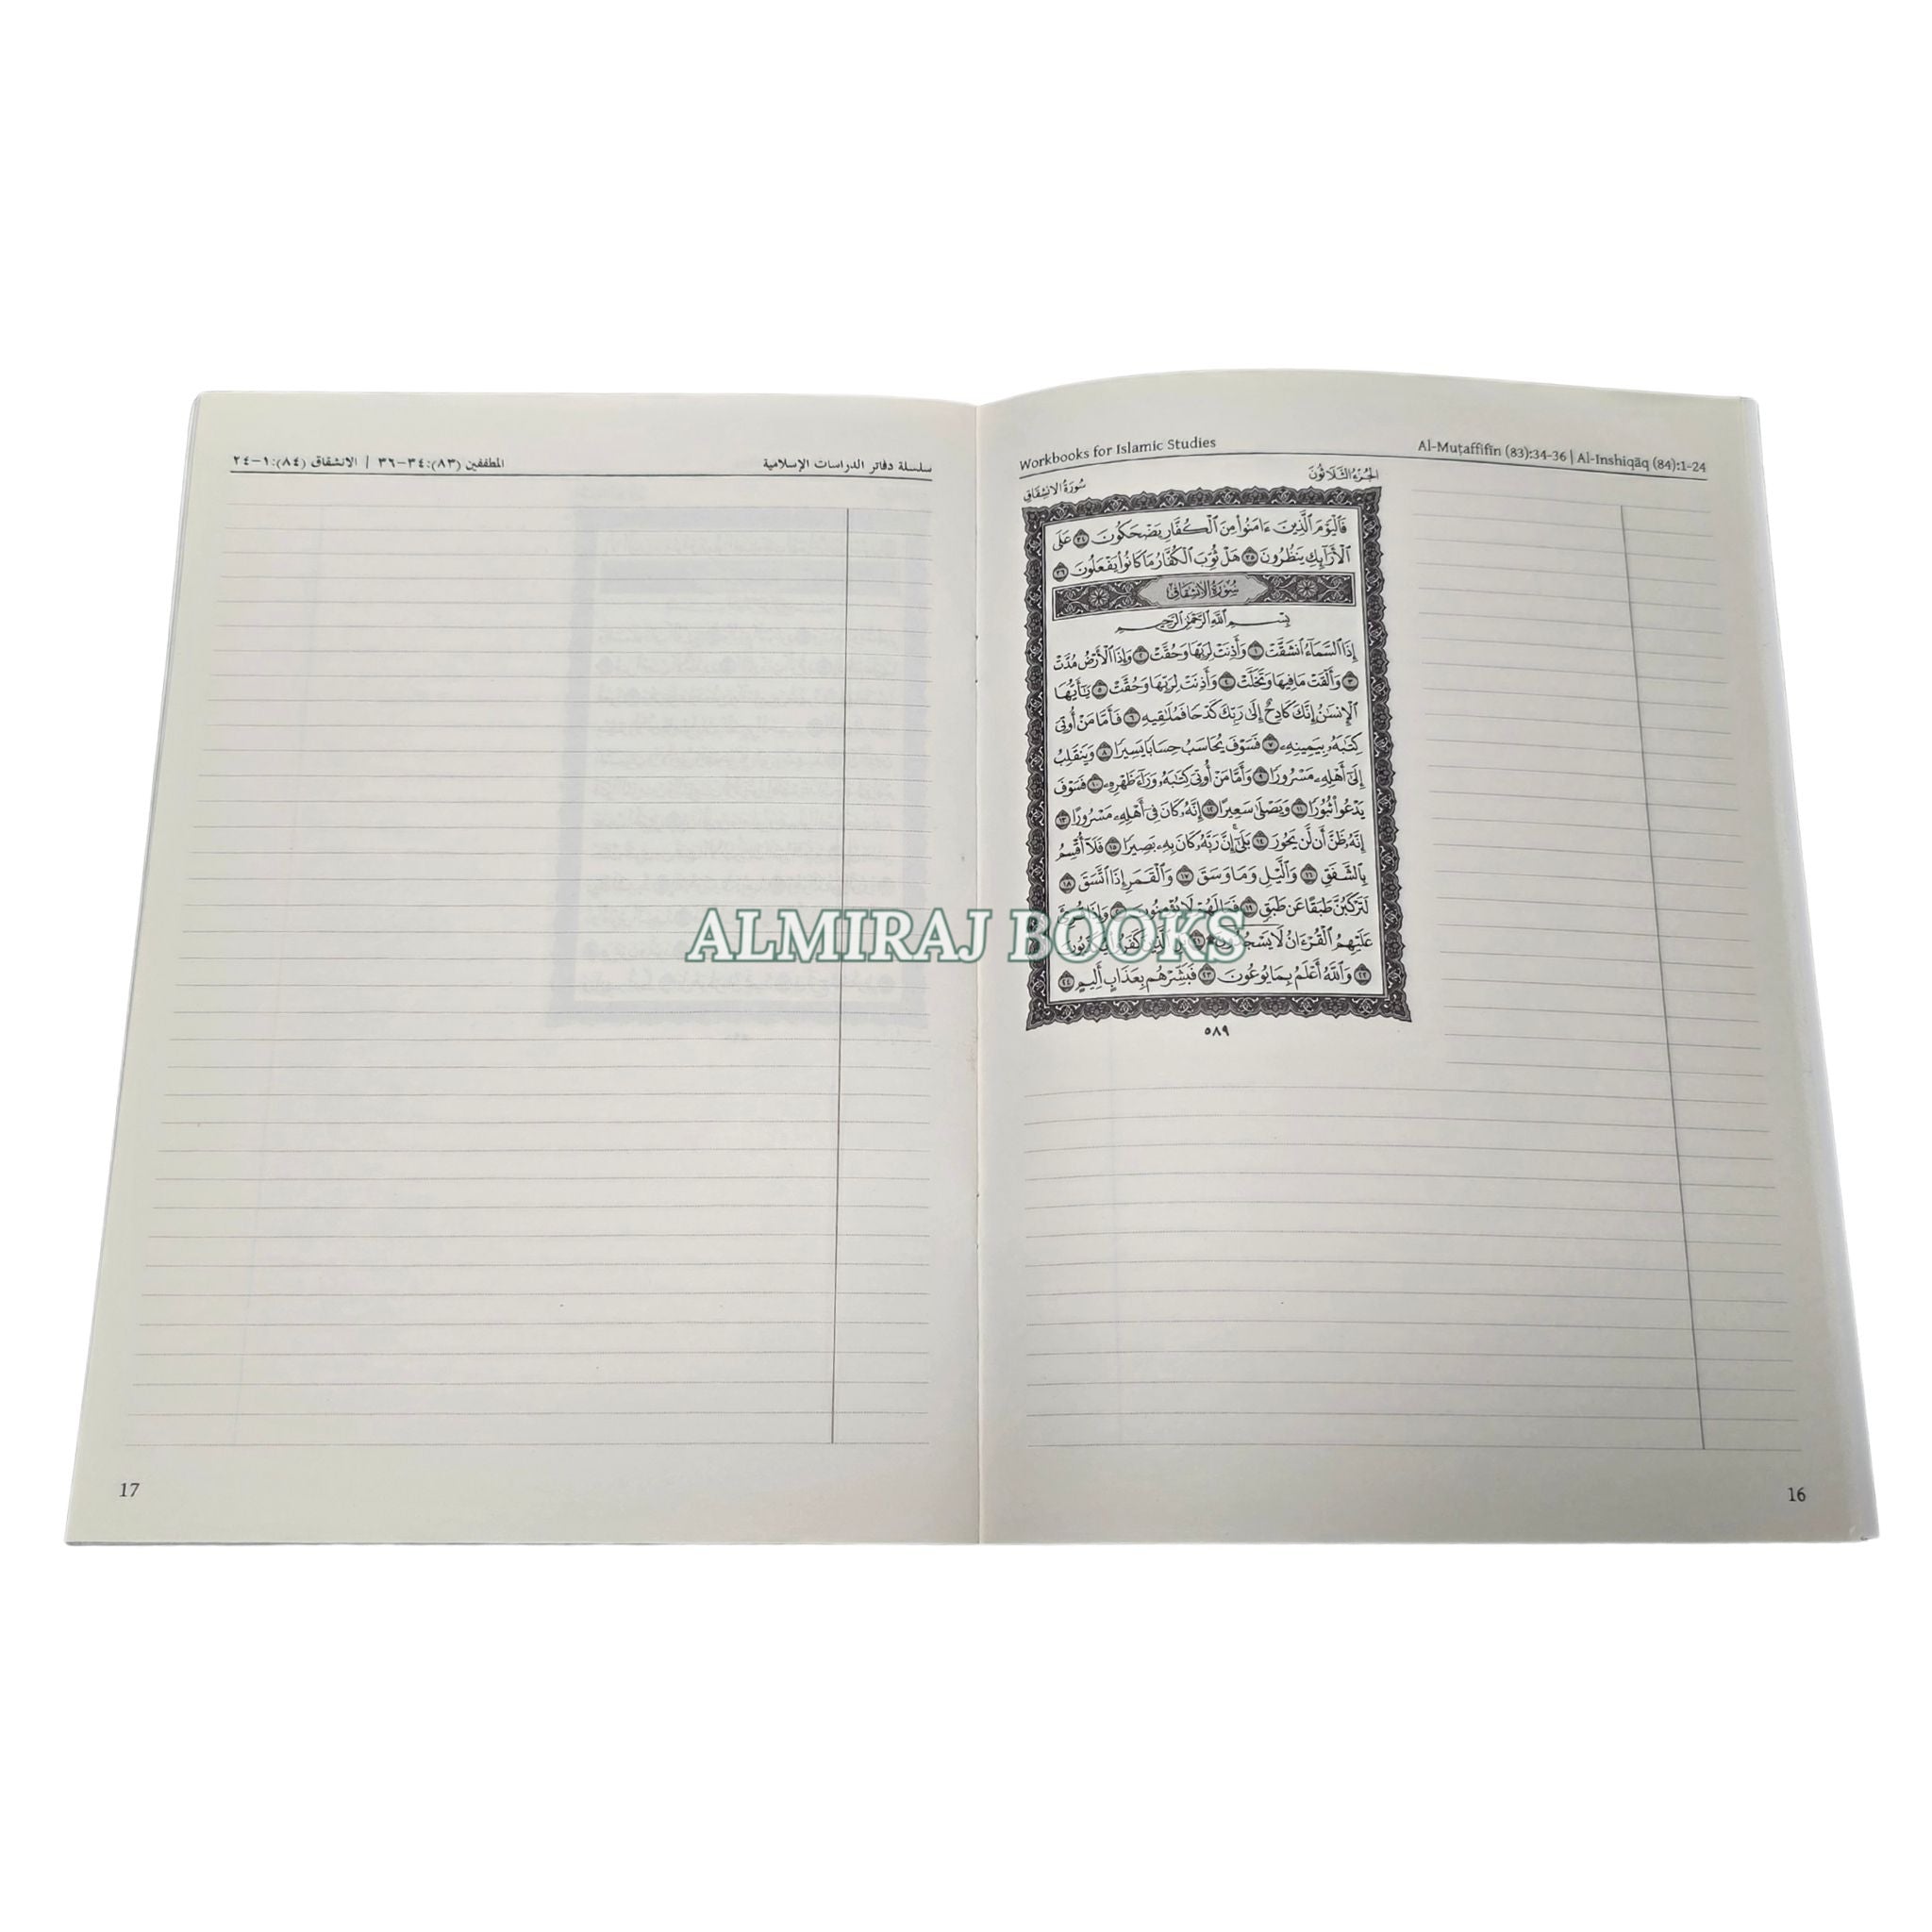 Workbooks for Islamic Studies
Al-Muṭaffifīn (83):34-36 | Al-Inshiqāq (84):1-24
سُورَةُ الانشِقَاقِ
الجُزءُ الثَّلَاثُونَ
فَٱلْيَوْمَ ٱلَّذِينَ ءَامَنُوا۟ مِنَ ٱلْكُفَّارِ يَضْحَكُونَ ٣٤ عَلَى
ٱلْأَرَآئِكِ يَنظُرُونَ ٣٥ هَلْ ثُوِّبَ ٱلْكُفَّارُ مَا كَانُوا۟ يَفْعَلُونَ ٣٦
سُورَةُ الانشِقَاقِ
بِسْمِ ٱللَّهِ ٱلرَّحْمَٰنِ ٱلرَّحِيمِ
إِذَا ٱلسَّمَآءُ ٱنشَقَّتْ ١ وَأَذِنَتْ لِرَبِّهَا وَحُقَّتْ ٢ وَإِذَا ٱلْأَرْضُ مُدَّتْ
٣ وَأَلْقَتْ مَا فِيهَا وَتَخَلَّتْ ٤ وَأَذِنَتْ لِرَبِّهَا وَحُقَّتْ ٥ يَٰٓأَيُّهَا
ٱلْإِنسَٰنُ إِنَّكَ كَادِحٌ إِلَىٰ رَبِّكَ كَدْحًا فَمُلَٰقِيهِ ٦ فَأَمَّا مَنْ أُوتِىَ
كِتَٰبَهُۥ بِيَمِينِهِۦ ٧ فَسَوْفَ يُحَاسَبُ حِسَابًا يَسِيرًا ٨ وَيَنقَلِبُ
إِلَىٰٓ أَهْلِهِۦ مَسْرُورًا ٩ وَأَمَّا مَنْ أُوتِىَ كِتَٰبَهُۥ وَرَآءَ ظَهْرِهِۦ ١٠ فَسَوْفَ
يَدْعُوا۟ ثُبُورًا ١١ وَيَصْلَىٰ سَعِيرًا ١٢ إِنَّهُۥ كَانَ فِىٓ أَهْلِهِۦ مَسْرُورًا ١٣
إِنَّهُۥ ظَنَّ أَن لَّن يَحُورَ ١٤ بَلَىٰٓ إِنَّ رَبَّهُۥ كَانَ بِهِۦ بَصِيرًا ١٥ فَلَآ أُقْسِمُ
بِٱلشَّفَقِ ١٦ وَٱلَّيْلِ وَمَا وَسَقَ ١٧ وَٱلْقَمَرِ إِذَا ٱتَّسَقَ ١٨
لَتَرْكَبُنَّ طَبَقًا عَن طَبَقٍ ١٩ فَمَا لَهُمْ لَا يُؤْمِنُونَ ٢٠ وَإِذَا قُرِئَ
عَلَيْهِمُ ٱلْقُرْءَانُ لَا يَسْجُدُونَ ٢١ بَلِ ٱلَّذِينَ كَفَرُوا۟ يُكَذِّبُونَ
٢٢ وَٱللَّهُ أَعْلَمُ بِمَا يُوعُونَ ٢٣ فَبَشِّرْهُم بِعَذَابٍ أَلِيمٍ ٢٤
٥٨٩
16
سلسلة دفاتر الدراسات الإسلامية
المطففين (٨٣):٣٤-٣٦ | الانشقاق (٨٤):١-٢٤
17
ALMIRAJ BOOKS